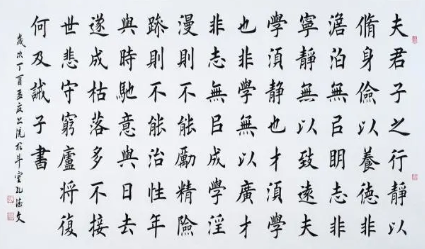 夫君子之行靜以
脩身儉以養德非
澹泊無㠯明志非
寧靜無以致遠夫
學湏靜也才湏學
也非學無以廣才
非志無㠯成學淫
漫則不能勵精險
躁則不能治性年
與時馳意與日去
遂成枯落多不接
世悲守窮廬將復
何及誡子書
歲次丁酉